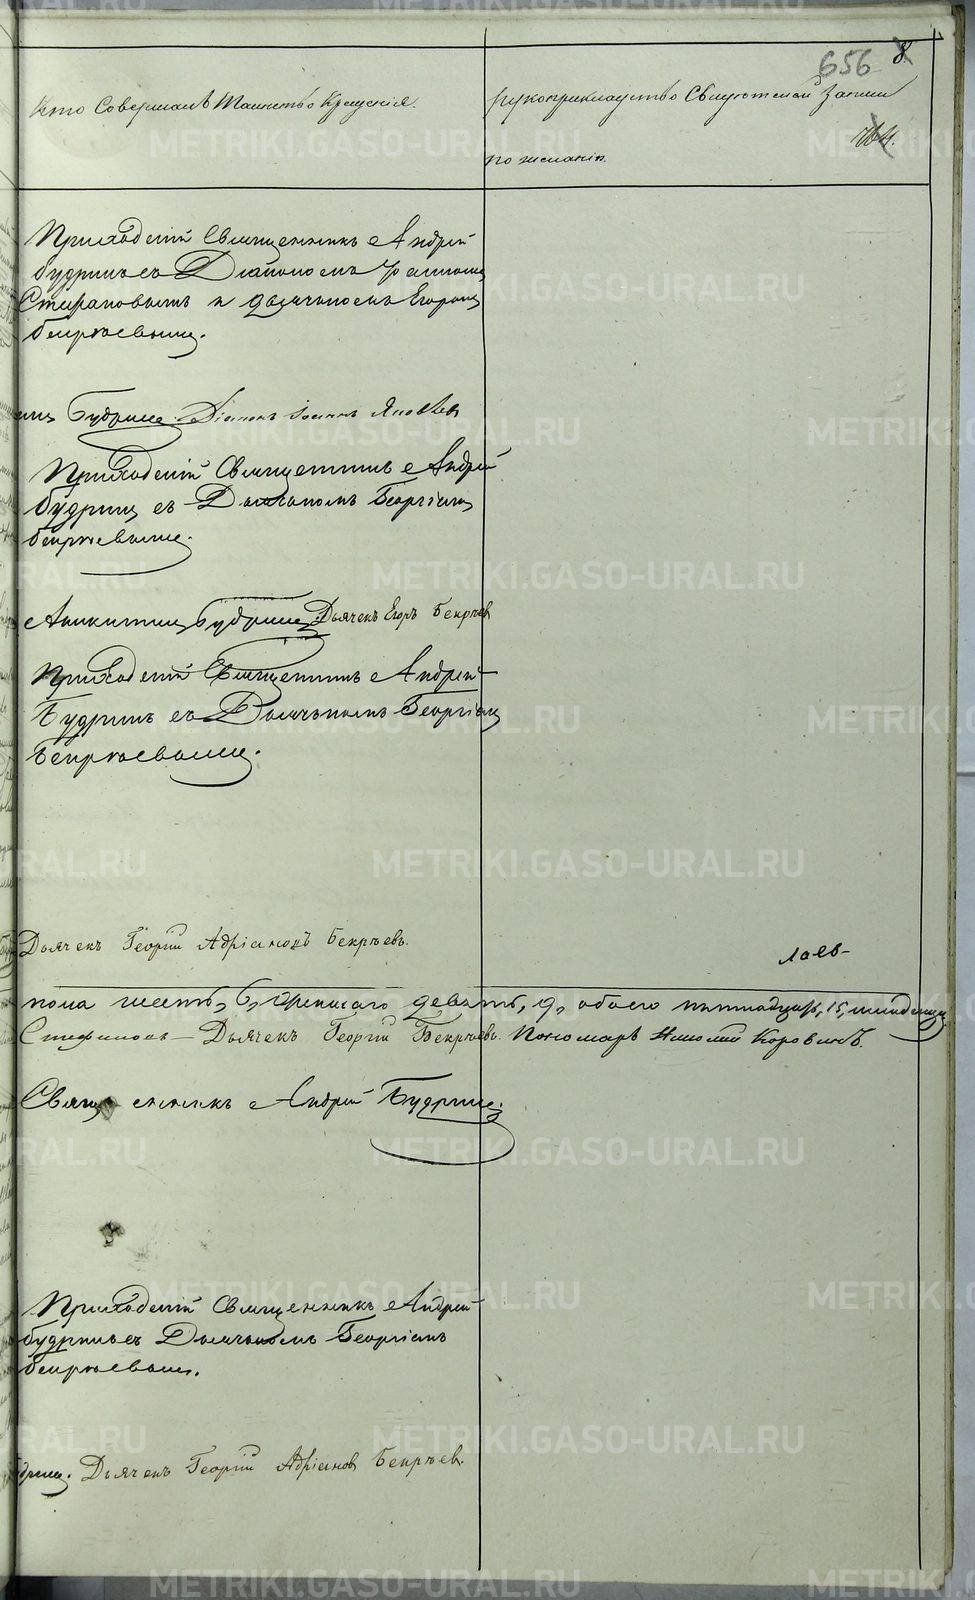 656 8
Кто Совершалъ Таинство Крещенія. рукоприкладство Свидѣтелей записи
по желанію.
Приходскій Священникъ Андрей
Будринъ съ Діакономъ
Стефановымъ и Дьячькомъ Егоромъ
Бекрѣевымъ.
Будринъ. Діаконъ Іоаннъ Яковлевъ
Приходскій Священникъ Андрей
Будринъ съ Дьячькомъ Георгіемъ
Бекрѣевымъ.
Будринъ. Дьячекъ Егоръ Бекрѣев
Приходскій Священникъ Андрей
Будринъ съ Дьячькомъ Георгіемъ
Бекрѣевымъ.
Дьячекъ Георгій Адріановъ Бекрѣевъ.
пола шесть, 6, женскаго девять, 9, обоего пятнадцать, 15, младенцевъ
Дьячекъ Георгій Бекрѣевъ. Пономарь Николай Коровинъ.
Священникъ Андрей Будринъ.
Приходскій Священникъ Андрей
Будринъ съ Дьячькомъ Георгіемъ
Бекрѣевымъ.
Дьячекъ Георгій Адріановъ Бекрѣев.
METRIKI.GASO-URAL.RU